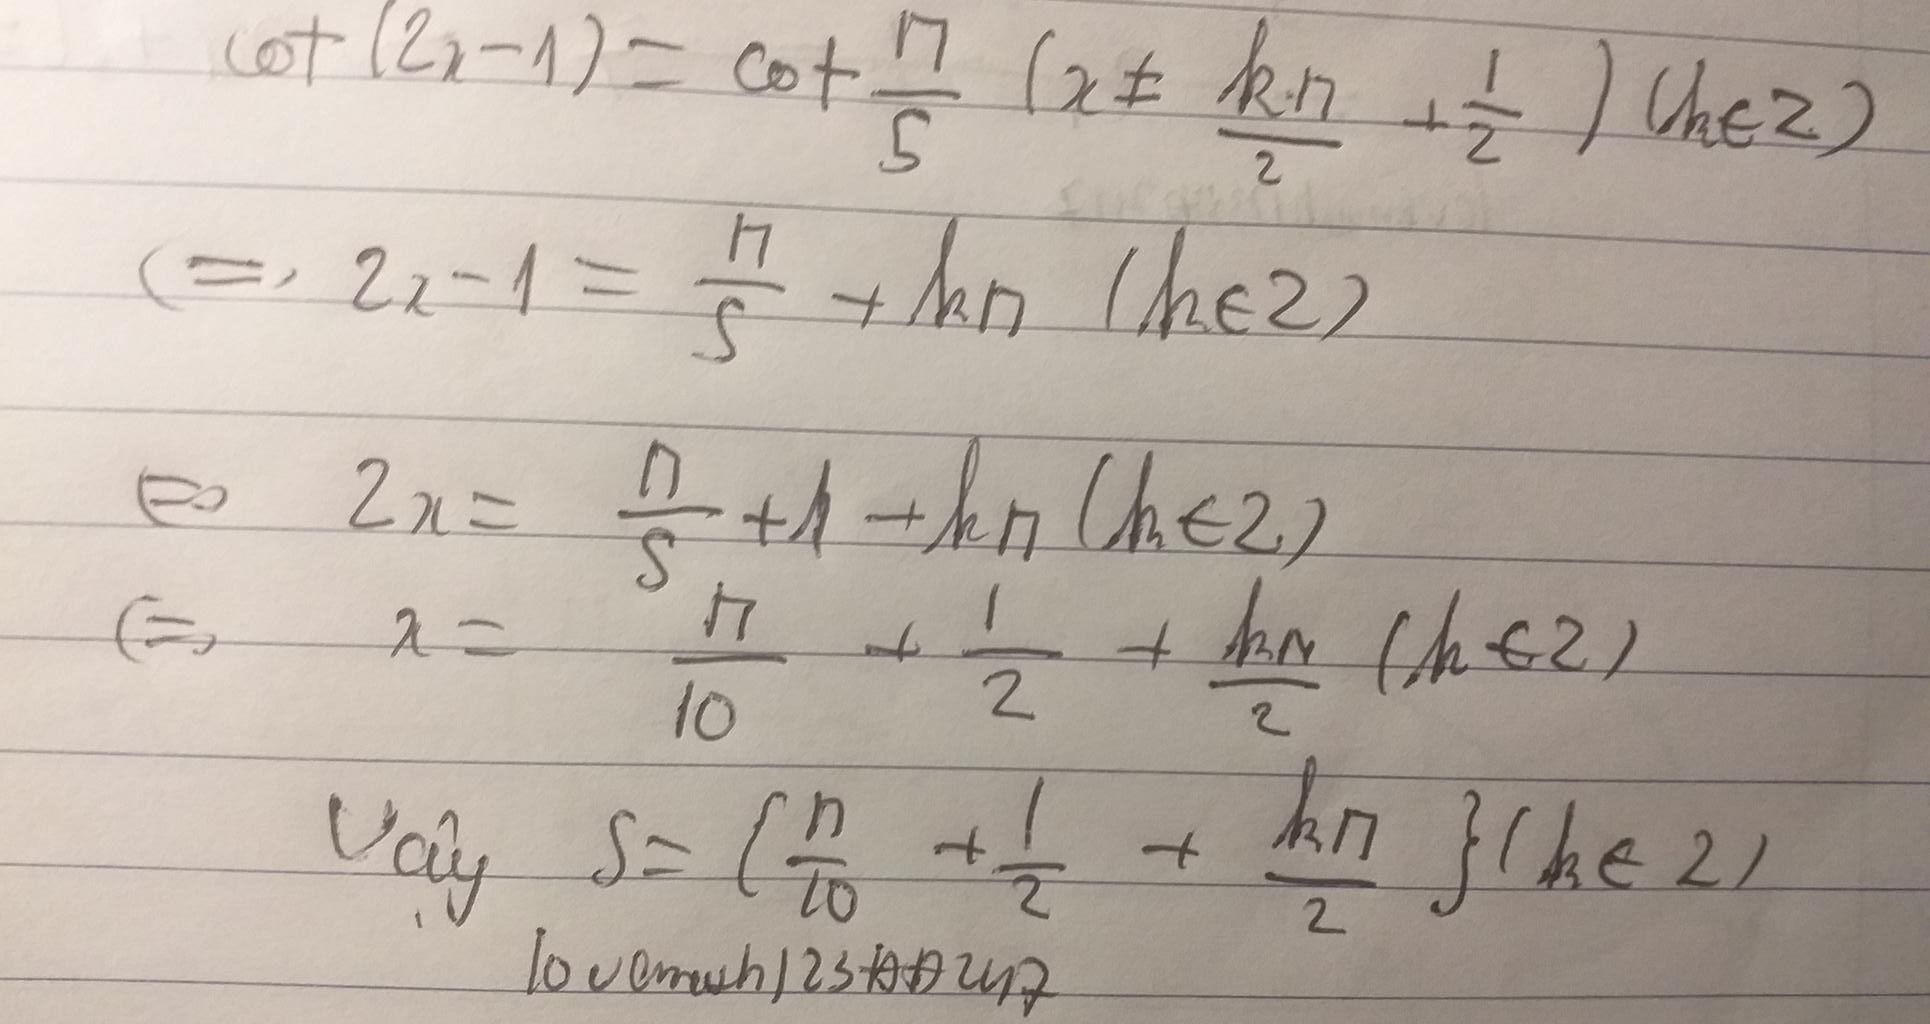 cot (2x-1) = cot π/5 (x ≠ kπ/2 + 1/2) (k∈Z)
<=> 2x-1 = π/5 + kπ (k∈Z)
<=> 2x = π/5 + 1 + kπ (k∈Z)
<=> x = π/10 + 1/2 + kπ/2 (k∈Z)
Vậy S = {π/10 + 1/2 + kπ/2} (k∈Z)